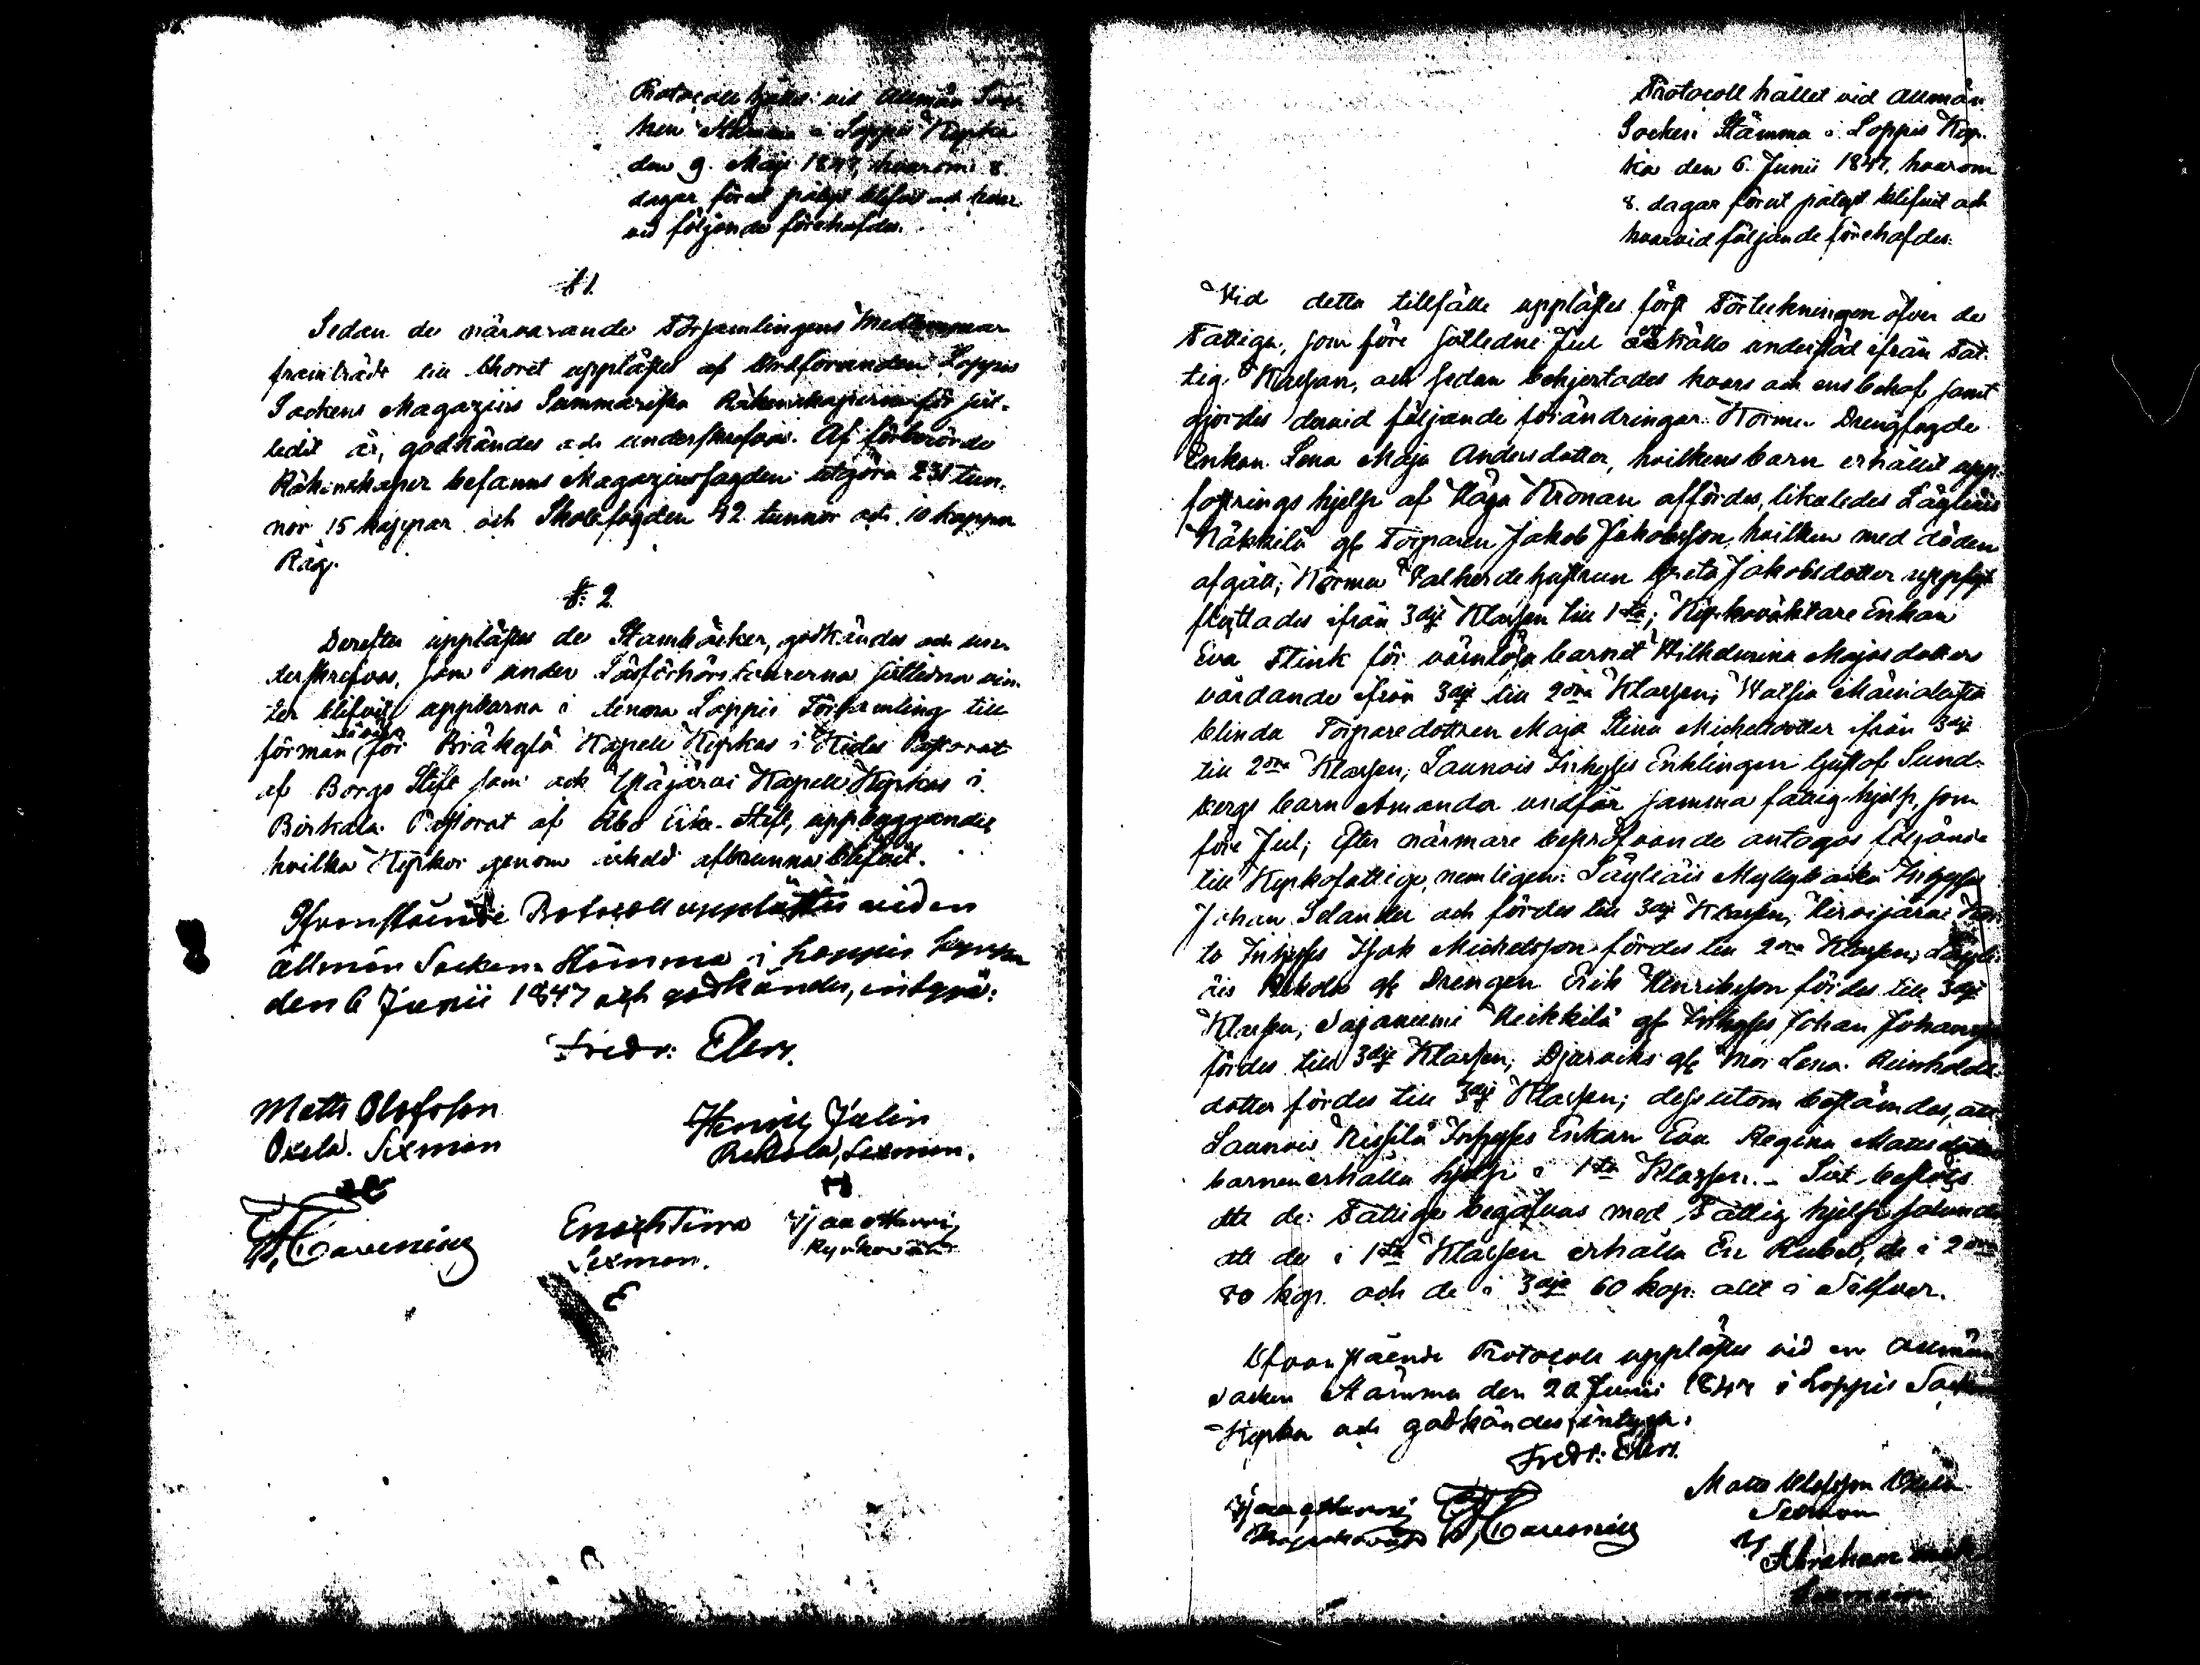 Protocoll hållet vid Allmän Soc
ken Stämma i Loppis Kyrka
den 9. Maji 1847, hvarom 8.
dagar förut pålyst blifvit och hvar
vid följande förehafdes.
§ 1.
Sedan de närvarande Församlingens Medlemmar
framträdt till Choret upplästes af Ordföranden Loppis
Sockens Magazins Summariska Räkenskaperna för sist-
ledit år, godkändes och underskrefvos. Af förberörde
Räkenskaper befanns Magazinsfonden utgöra 231 tun-
nor 15 kappar och Skolefonden 42 tunnor och 10 kappar
Råg.
§. 2.
Derefter upplästes de Stamböcker, godkändes och un-
derskrefvos, som under Läsförhörstourerna sistledne vin-
ter blifvit uppburna i denna Loppis Församling till
förmån för Bräkylä Kapell Kyrkas i Kides Pastorat
af Borgo Stift som ock Ylöjärvi Kapell Kyrkas i
Birkala Pastorat af Åbo Erke-Stift, uppbyggande,
hvilka Kyrkor genom åskeld afbrunna blifvit.
Ofvanstående Protocoll upplästes vid en
allmän Socken Stämma i Loppis Kyrka
den 6 Junii 1847 och godkändes, intyga:
Fredr: Elers.
Matts Olofsson
Oxela. Sexman
Henrik Julin
Rekola, Sexman.
Enoch Timo
Sexman.
Isaac Harri
Kyrkovärd
Protocoll hållet vid Allmän
Socken Stämma i Loppis Kyr-
ka den 6. Junii 1847, hvarom
8. dagar förut pålyst blifvit och
hvarvid följande förehafdes:
Vid detta tillfälle upplästes först Förteckningen öfver de
Fattiga, som före sistledne Jul erhållo understöd ifrån Fat-
tig Kassan, och sedan behjertades hvars och ens behof samt
gjordes dervid följande förändringar: Kormu Drengfogde
Enkan Lena Maja Andersdotter, hvilkens barn erhållit upp-
fostrings hjelp af Höga Kronan affördes, likaledes Läyliäis
Näkkilä gs Torparen Jakob Jakobsson, hvilken med döden
afgått; Kormu Valkerde hustrun Greta Jakobsdotter
flyttades ifrån 3dje Klassen till 1sta; Kyrkoväktare Enkan
Eva Flink för värnlösa barnet Wilhelmina Majasdotters
vårdande ifrån 3dje till 2dra Klassen;
blinda Torparedottren Maja Stina Michelsdotter ifrån 3dje
till 2dra Klassen; Launois Inhyses Enklingen Gustaf Sund-
bergs barn Amanda undfår samma fattig-hjelp, som
före Jul; Efter närmare bepröfvande antogos följande
till Kyrkofattige, nemligen: Läyliäis Myllyb Inhyses
Johan Selander och fördes till 3dje Klassen, Hirvijärvi
Inhyses Isak Michelsson fördes till 2dra Klassen, Läyli-
äis Rekola gs Drengen Erik Henriksson fördes till 3dje
Klassen, Sajaniemi Heikkilä gs Inhyses Johan Johansson
fördes till 3dje Klassen; gs Mor Lena Reinholds-
dotter fördes till 3dje Klassen; dessutom bestämdes, att
Launois Inhyses Enkan Eva Regina Mattsdotters
barnen erhålla hjelp i 1sta Klassen. - Sist beslöts
att de Fattiga begåfvas med Fattig hjelp sålunda
att de i 1sta Klassen erhålla En Rubel, de i 2dra
80 kop. och de i 3dje 60 kop. allt i Silfver.
Ofvanstående Protocoll upplästes vid en Allmän
Socken Stämma den 20 Junii 1847 i Loppis Socken
Kyrka och godkändes, intyga:
Fredr: Elers.
Isaac Harri
Kyrkovärd
Matts Olofsson Oxela
Sexman
Abraham
Sexman